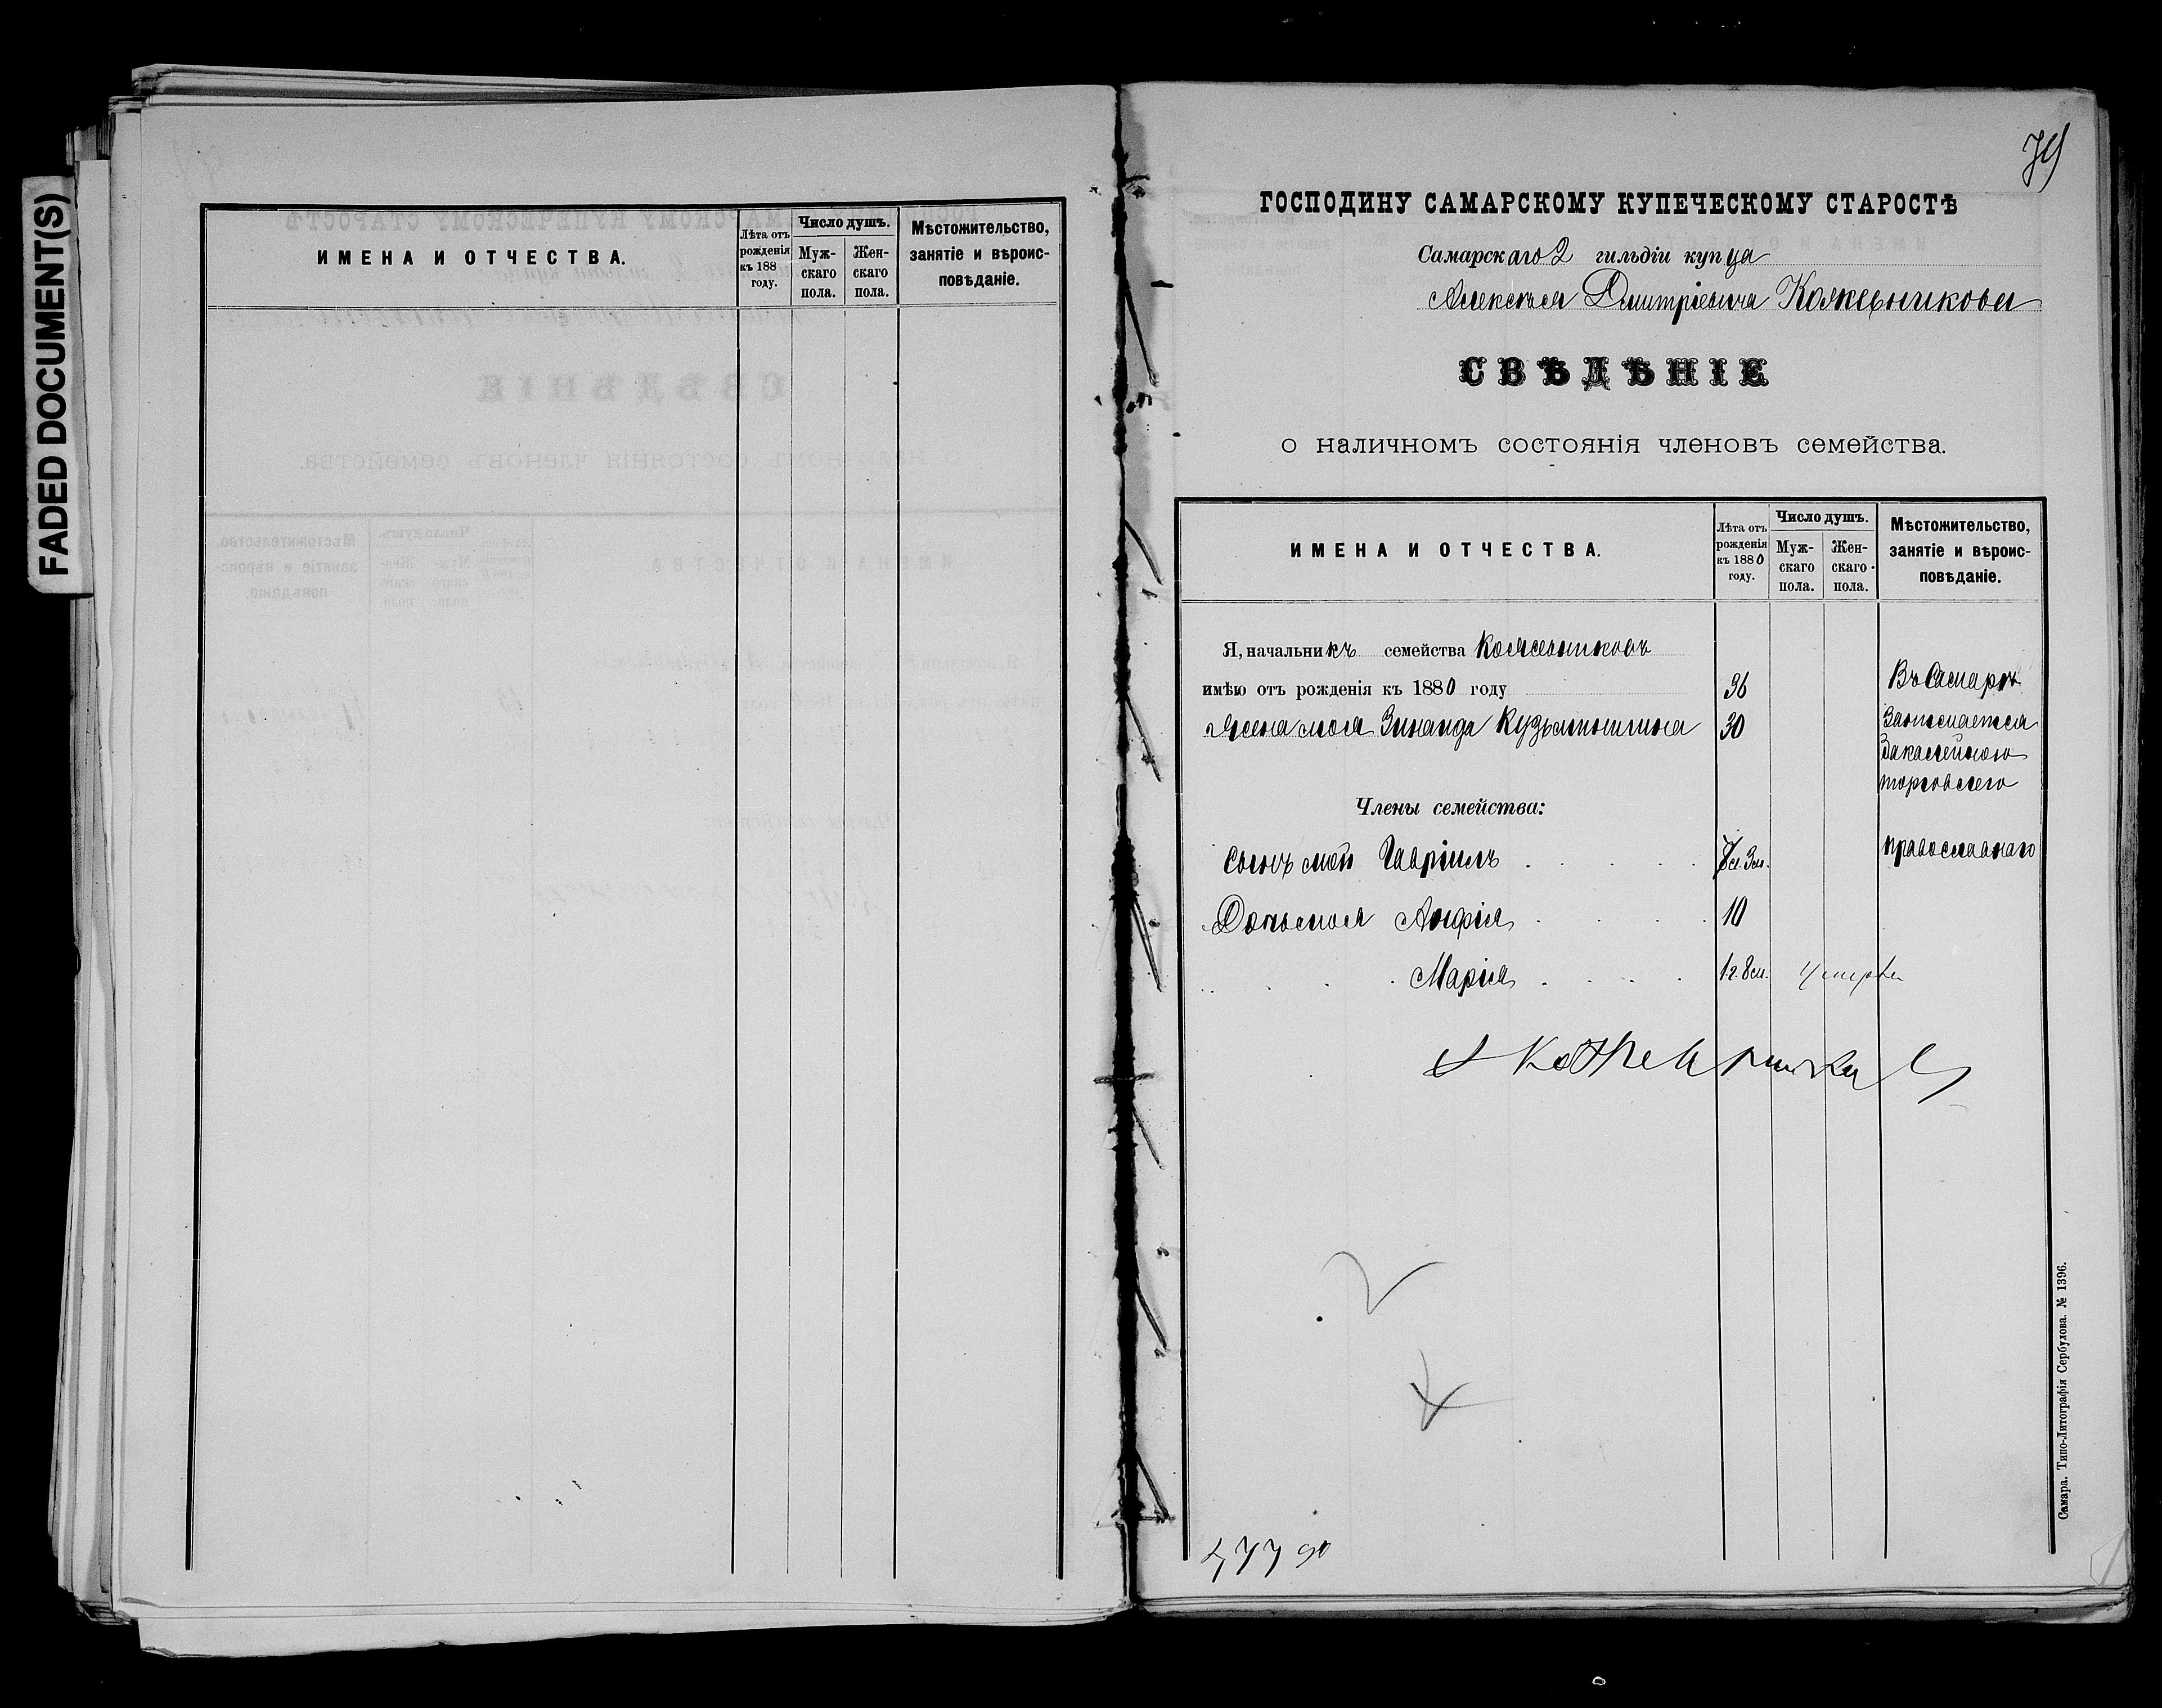 FADED DOCUMENT(S)
ИМЕНА И ОТЧЕСТВА.
Лѣта отъ рожденія къ 188 году.
Число душъ.
Мужскаго пола.
Женскаго пола.
Мѣстожительство, занятіе и вѣроисповѣданіе.
79
ГОСПОДИНУ САМАРСКОМУ КУПЕЧЕСКОМУ СТАРОСТѢ
Самарскаго 2 гильдіи купца
Алексѣя Дмитріевича Кожевникова
СВѢДѢНІЕ
о наличномъ состоянія членовъ семейства.
ИМЕНА И ОТЧЕСТВА.
Лѣта отъ рожденія къ 1880 году.
Число душъ.
Мужскаго пола.
Женскаго пола.
Мѣстожительство, занятіе и вѣроисповѣданіе.
Я, начальникъ семейства Кожевниковъ
имѣю отъ рожденія къ 1880 году 36 Въ Самарѣ
Жена моя Зинаида Кузьминишна 30 Занимается
торговлею
Члены семейства:
Сынъ мой Гавріилъ 7л. 3м. православнаго
Дочь моя Анфія 10
Марія 1 г. 8 м. умерла
А Кожевникъ
477 90
Самара. Типо-Литографія Сербулова. № 1396.